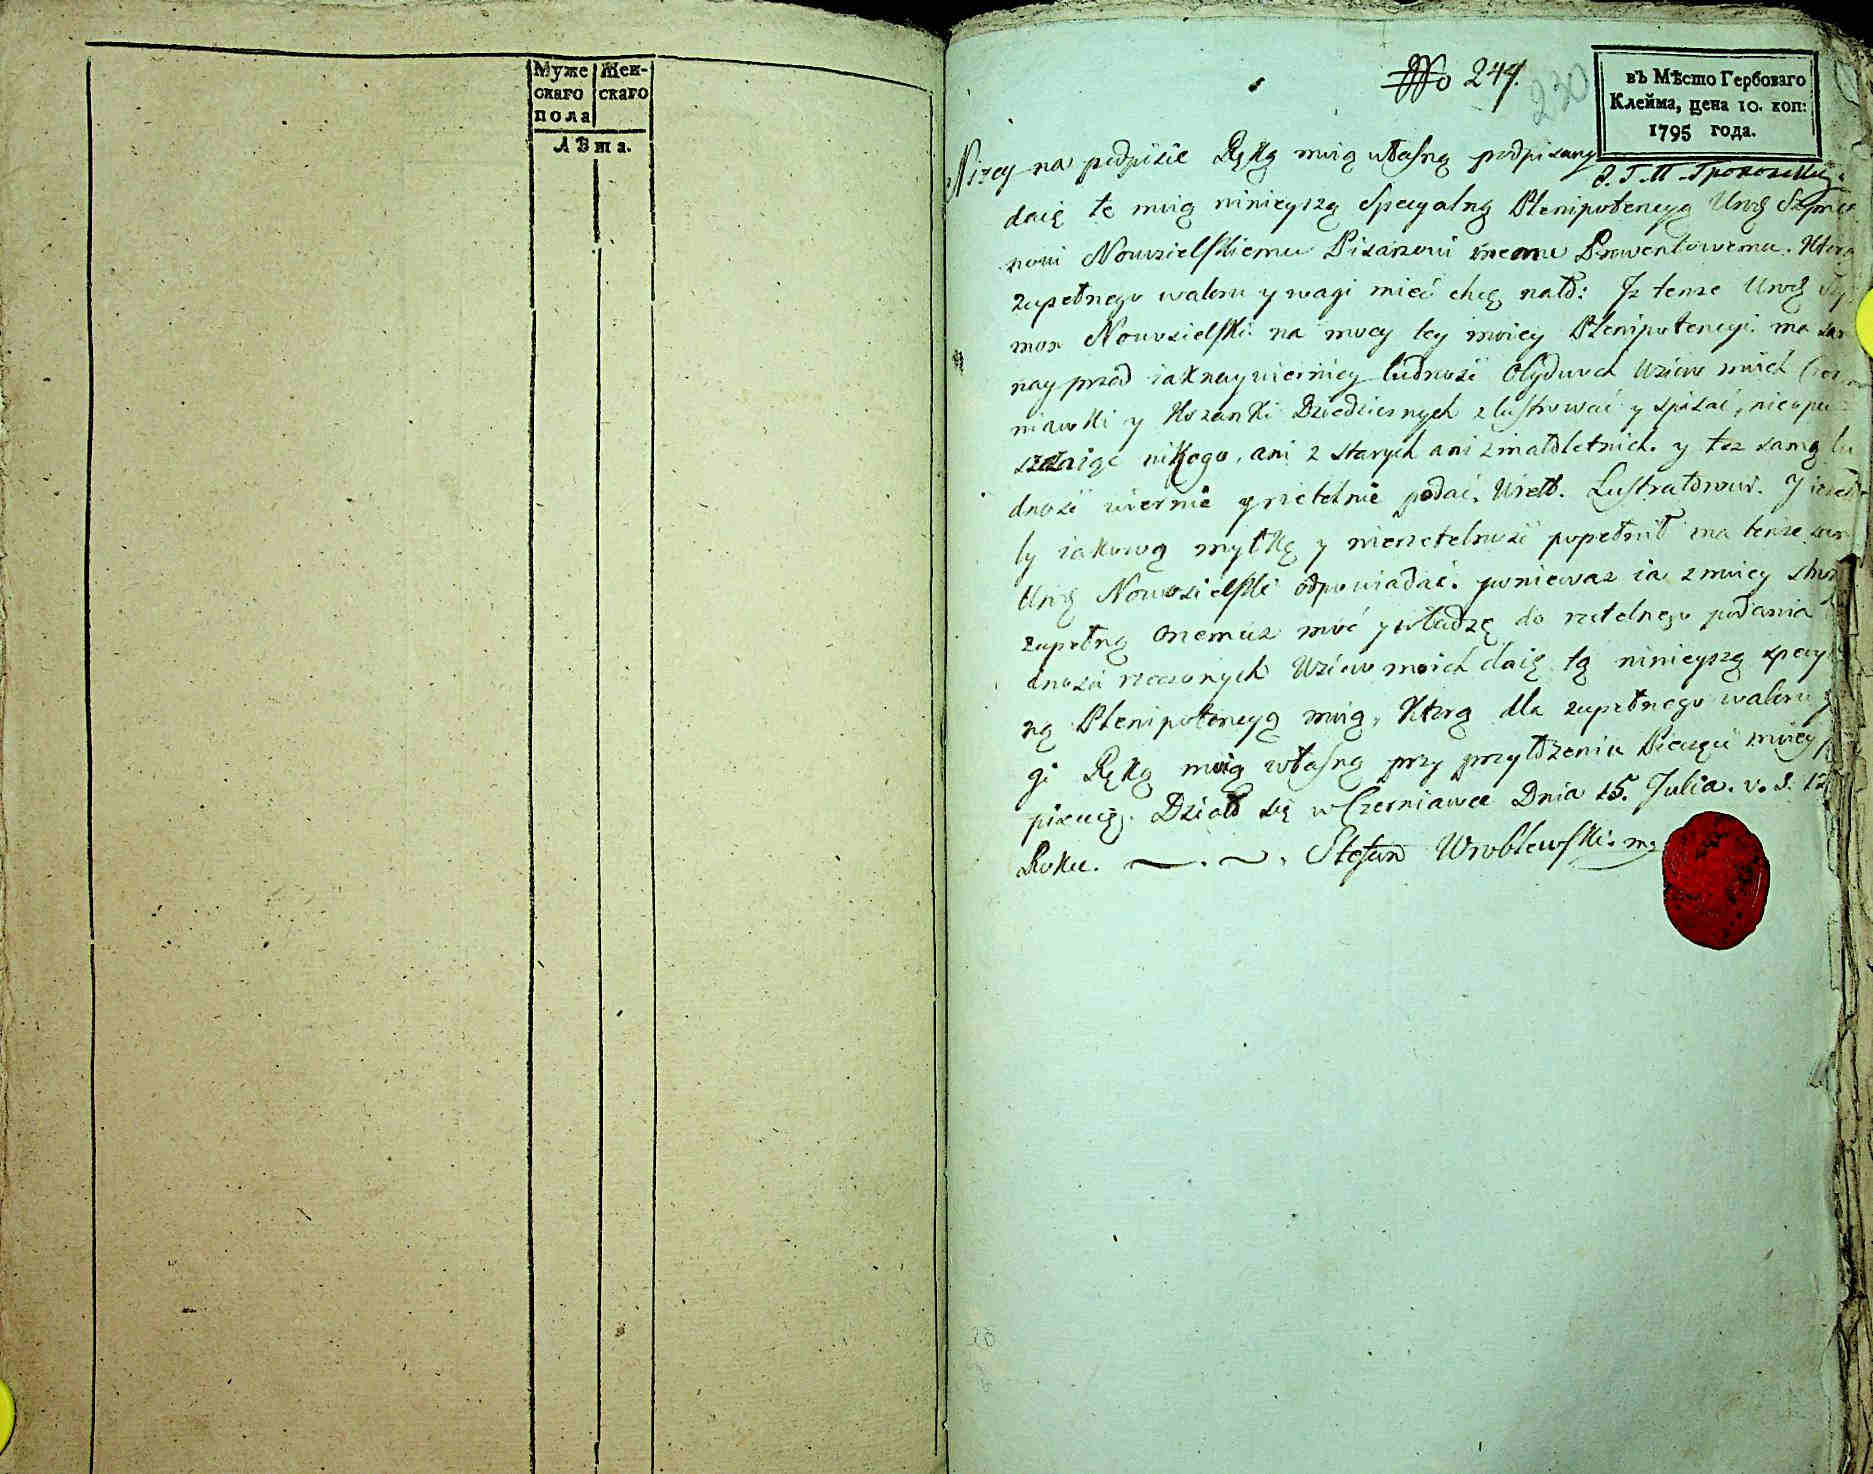 Муже Жен-
скаго скаго
пола
Лѣта.
No 244.
230
въ Мѣсто Гербоваго
Клейма, цена 10. коп:
1795 года.
Nizey na podpisie Ręką moią własną podpisany
daię tę moią ninieyszą Specyalną Plenipotencyą Urod Szymo
nowi Nowosielskiemu Pisarzowi memu Prowentowemu. Ktora
zupełnego waloru y wagi mieć chcę nato: Iz tenze Urod Szy
mon Nowosielski na mocy tey moiey Plenipotencyi ma
nayprzod iaknaywierniey ludnosć Obydwoch Wsiow moich Czer
niawki y Kozanki Dziedzicznych zlustrować y spisać, nieopu
szczaiąc nikogo, ani z starych ani z małoletnich. y tez samą lu
dnosć wiernie y rzetelnie podać. Lustratorowi. Y iezeli
by iakową myłkę y nierzetelnosć popełnił ma tenze sam
Urod Nowosielski odpowiadać. poniewaz ia z moiey stro
zupełną onemuz moc y władzę do rzetelnego podania
dnosci rzeczonych Wsiow moich daię tą ninieyszą specy
ną Plenipotencyą moią, Ktorą dla zupełnego waloru y
gi Ręką moią własną przy przyłozeniu Pieczęci moiey
pisuię. Działo się w Czerniawce Dnia 15. Julia. v. s. 17
Roku. Stefan Wroblewski. mp